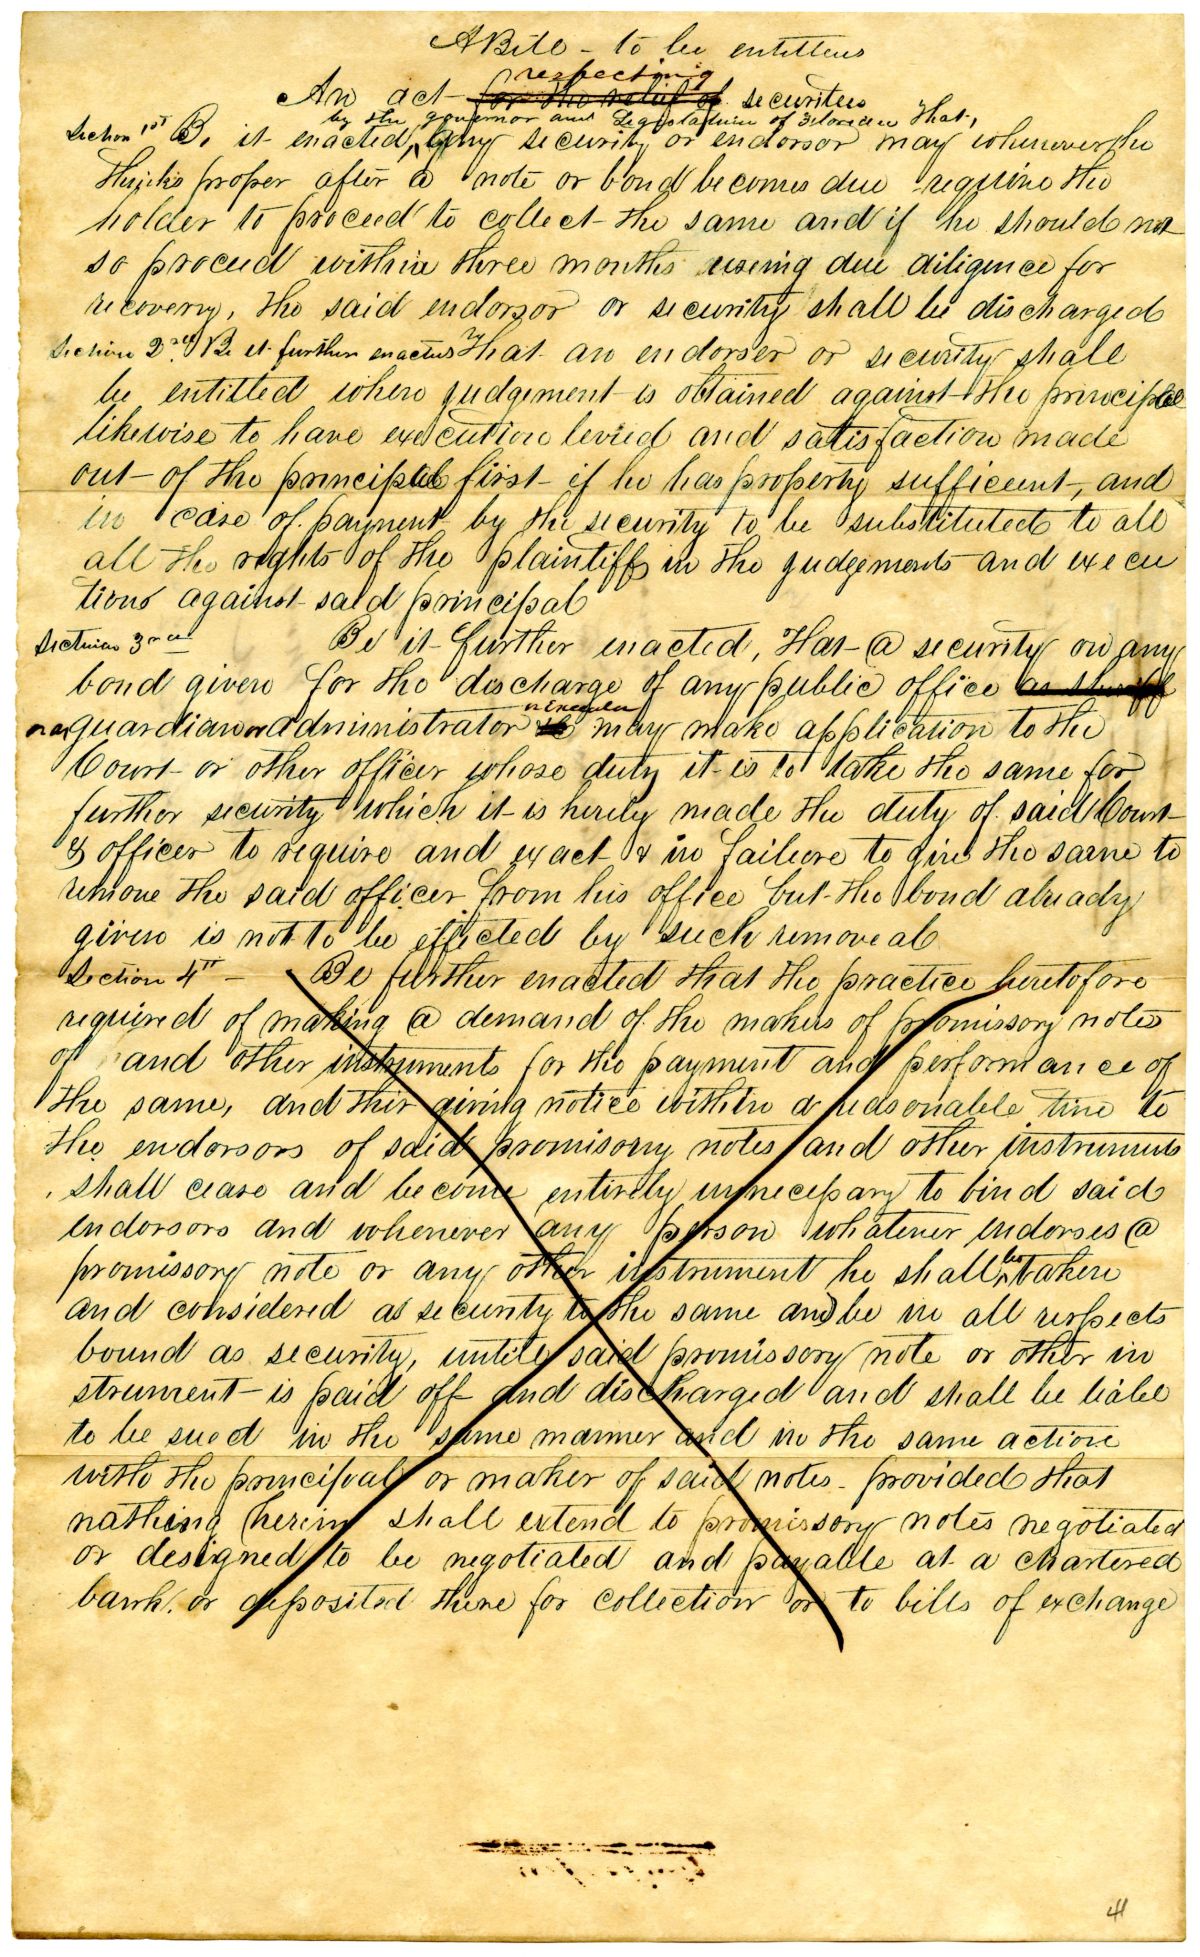 A Bill - to be entitled
respecting
An act for the relief of securities
by the governor and Legislature of Florida That,
Section 1st Be it enacted, any security or endorsor may whenever he
thinks proper after a note or bond becomes due require the
holder to proceed to collect the same and if he should not
so proceed within three months using due diligence for
recovery, the said endorsor or security shall be discharged
Section 2nd. Be it further enacted That an endorser or security shall
be entitled when judgement is obtained against the principal
likewise to have execution levied and satisfaction made
out of the principal first if he has property sufficient, and
in case of payment by the security to be substituted to all
all the rights of the plaintiff in the judgements and execu
tions against said principal
Section 3rd Be it further enacted, That a security on any
bond given for the discharge of any public office as sheriff
or as guardian or administrator or executor may make application to the
Court or other officer whose duty it is to take the same for
further security which it is hereby made the duty of said Court
& officer to require and exact & in failure to give the same to
remove the said officer from his office but the bond already
given is not to be effected by such removeal
Section 4th - Be further enacted that the practice heretofore
required of making a demand of the makers of promissory notes
of and other instruments for the payment and performance of
the same, and their giving notice within a reasonable time to
the endorsors of said promisory notes and other instruments
shall cease and become entirely unnecessary to bind said
endorsors and whenever any person whatever endorses a
promissory note or any other instrument he shall be taken
and considered as security to the same and be in all respects
bound as security, untill said promissory note or other in
strument is paid off and discharged and shall be liable
to be sued in the same manner and in the same action
with the principal or maker of said notes - provided that
nathing herein shall extend to promissory notes negotiated
or designed to be negotiated and payable at a chartered
bank. or deposited there for collection or to bills of exchange
4